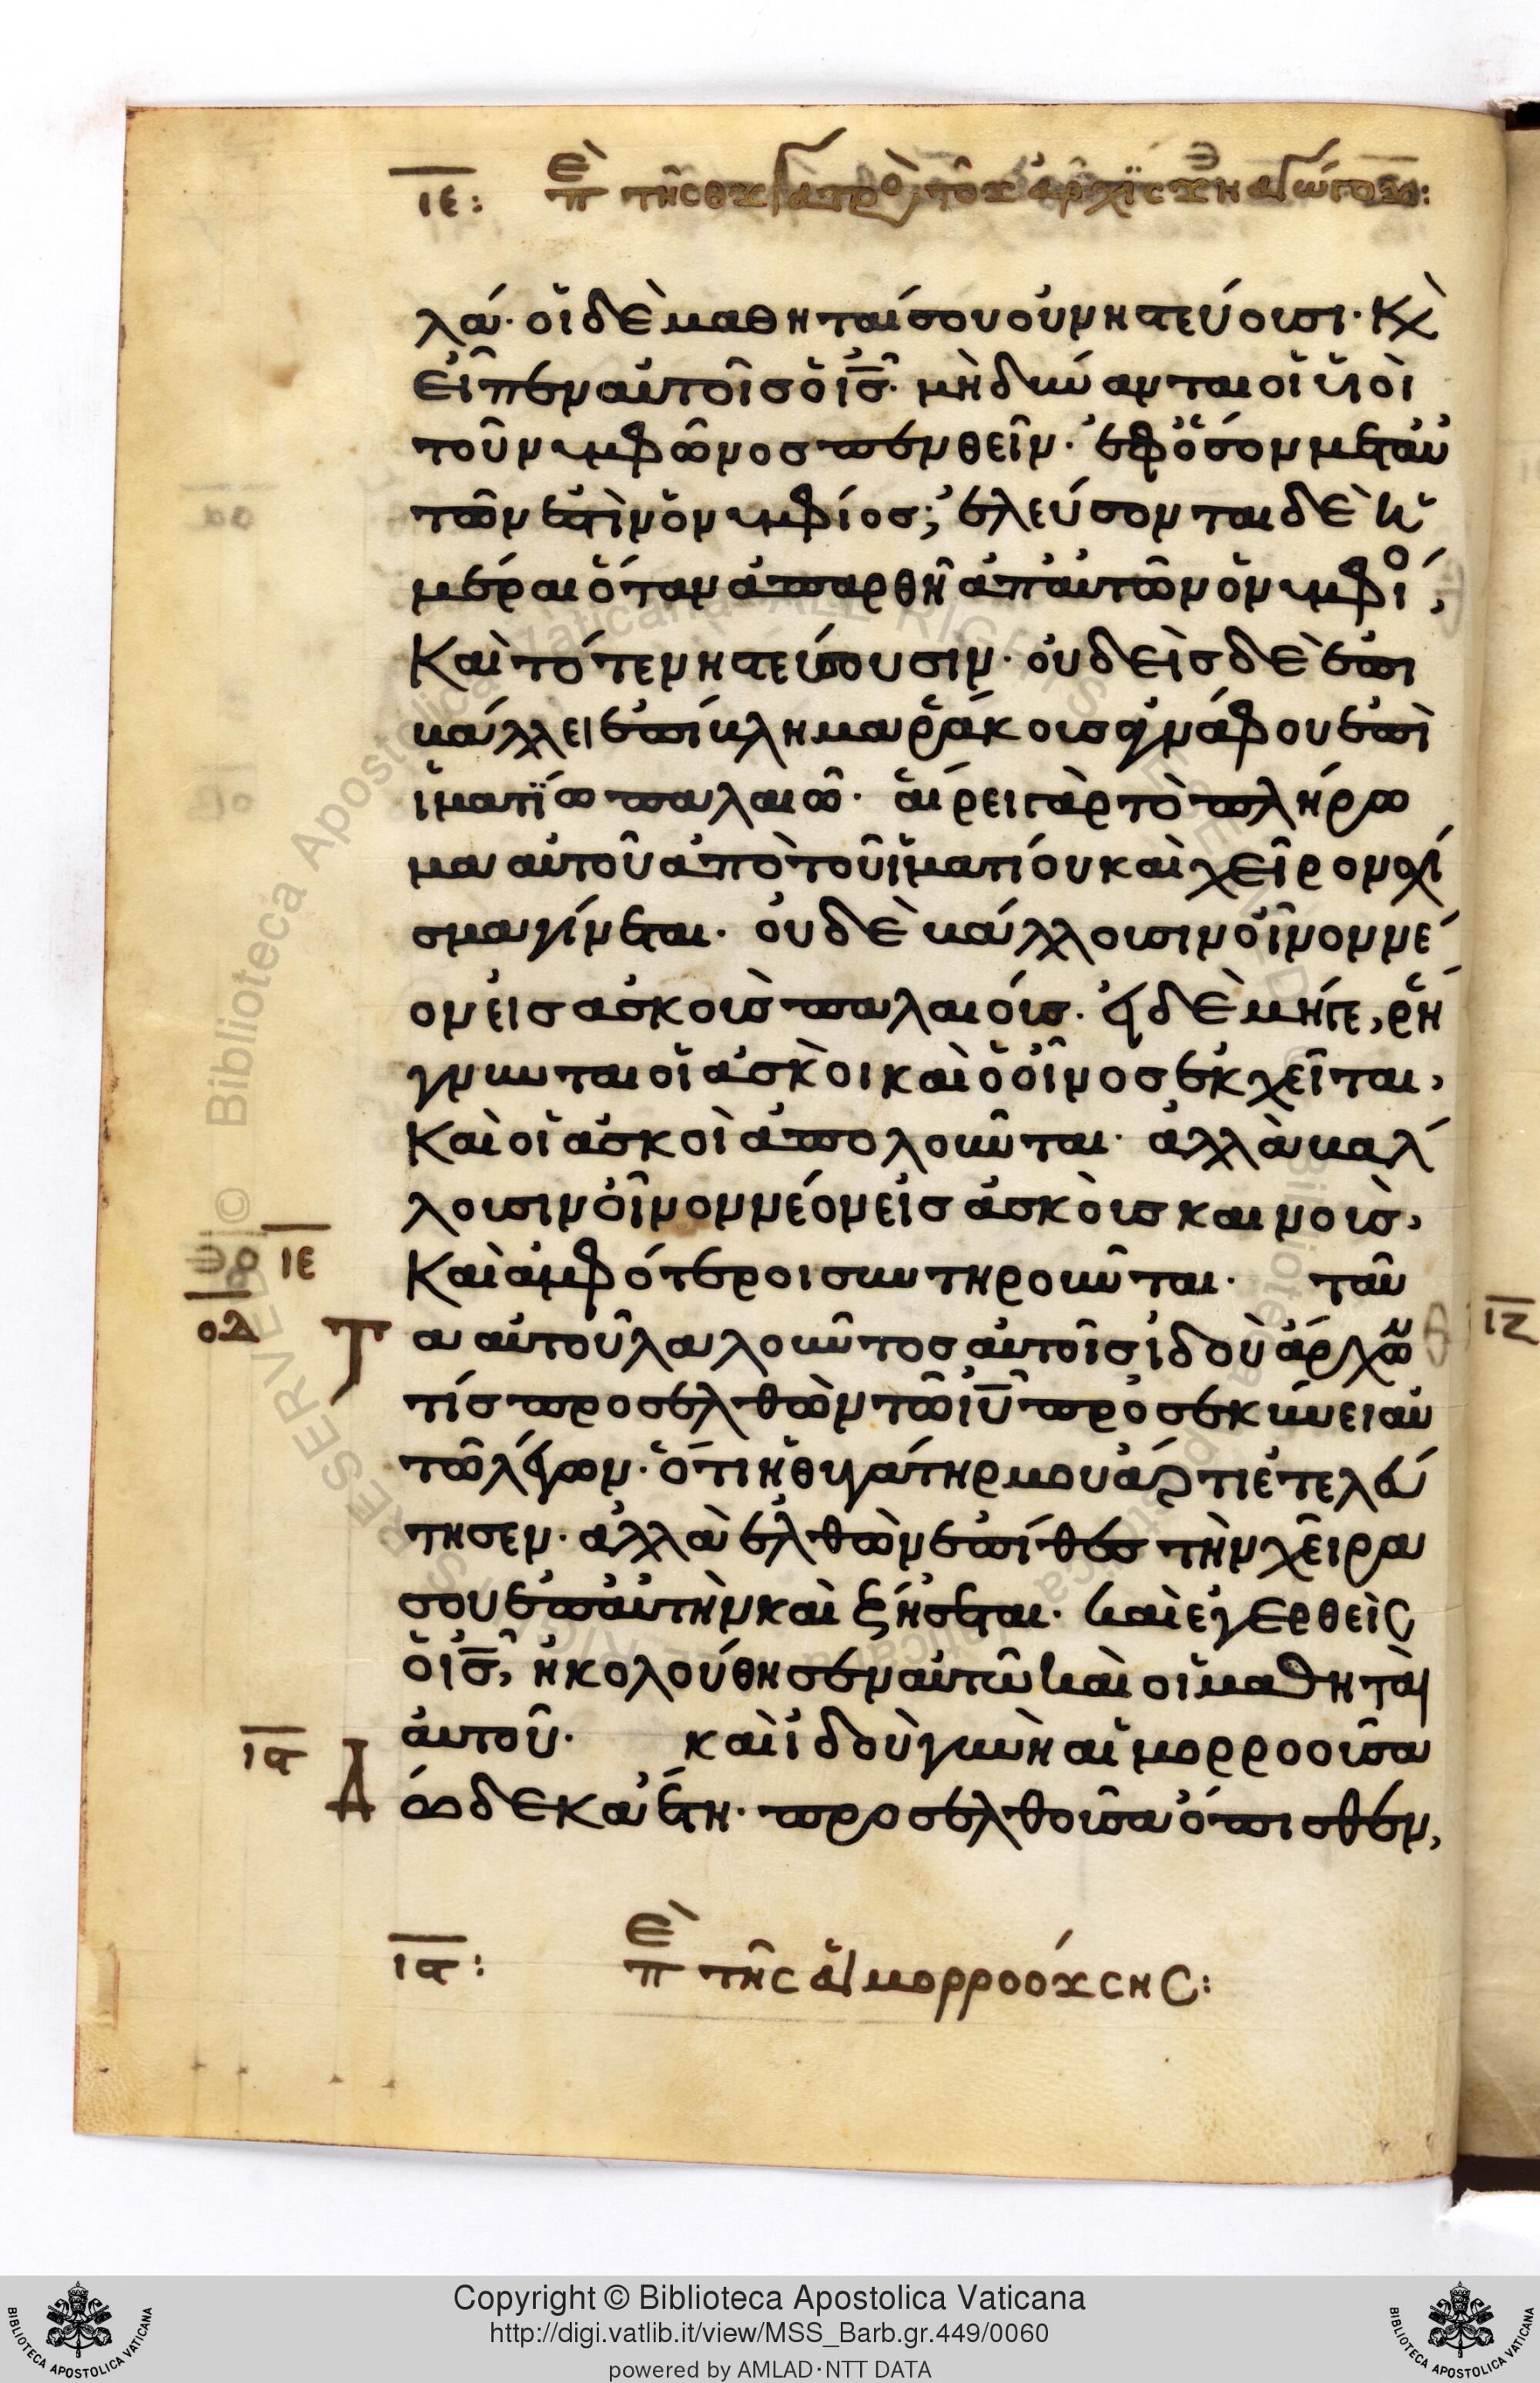 ιε: Περὶ τῆς θυγατρὸς τοῦ ἀρχϊσυναγώγου:
λά· οἱ δὲ μαθηταί σου οὐ νηστεύουσι· Κ(αὶ)
εἶπεν αὐτοῖς ὁ ις̅· μὴ δύνανται οἱ υἱοὶ
τοῦ νυμφῶνος πενθεῖν· ἐφ' ὅσον μετ' αὐ
τῶν ἐστὶν ὁ νυμφίος; ἐλεύσονται δὲ ἡ
μέραι ὅταν ἀπαρθῆ ἀπ' αὐτῶν ὁ νυμφίο,
Καὶ τότε νηστεύσουσιν· οὐδεὶς δὲ ἐπι
βάλλει ἐπίβλημα ῥάκους ἀγνάφου ἐπὶ
ἱματΐω παλαιῶ· αἴρει γὰρ τὸ πλήρω
μα αὐτοῦ ἀπὸ τοῦ ἱματίου καὶ χεῖρον σχί
σμα γίνεται· οὐδὲ βάλλουσιν οἶνον νέ
ον εἰς ἀσκοὺς παλαιούς· εἰ δὲ μήγε, ῥή
γνυνται οἱ ἀσκοὶ καὶ ὁ οἶνος ἐκχεῖται,
Καὶ οἱ ἀσκοὶ ἀπολοῦνται· ἀλλὰ βάλ
λουσιν οἶνον νέον εἰς ἀσκοὺς καινοὺς,
ιε Καὶ ἀμφότεροι συντηροῦνται· ταῦ
οδ Τ α αὐτοῦ λαλοῦντος αὐτοῖς ἰδοὺ ἄρχων ιζ
τίς προσελθὼν τῶ ιυ̅ προσεκύνει αὐ
τῶ λέγων· ὅτι ἡ θυγάτηρ μου ἄρτι ἐτελεύ
τησεν· ἀλλὰ ἐλθὼν ἐπίθες τὴν χεῖρα
σου ἐπ' αὐτὴν καὶ ζήσεται· καὶ ἐγερθεὶς
ὁ ις̅, ἠκολούθησεν αὐτῶ καὶ οἱ μαθηταὶ
ις αὐτοῦ· καὶ ἰδοὺ γυνὴ αἱμορροοῦσα
Δ ώδεκα ἔτη· προσελθοῦσα ὄπισθεν,
ις: Περὶ τῆς αἱμορροούσης:
© Biblioteca Apostolica Vaticana - ALL RIGHTS RESERVED
Copyright © Biblioteca Apostolica Vaticana
http://digi.vatlib.it/view/MSS_Barb.gr.449/0060
powered by AMLAD·NTT DATA
BIBLIOTECA APOSTOLICA VATICANA
BIBLIOTECA APOSTOLICA VATICANA